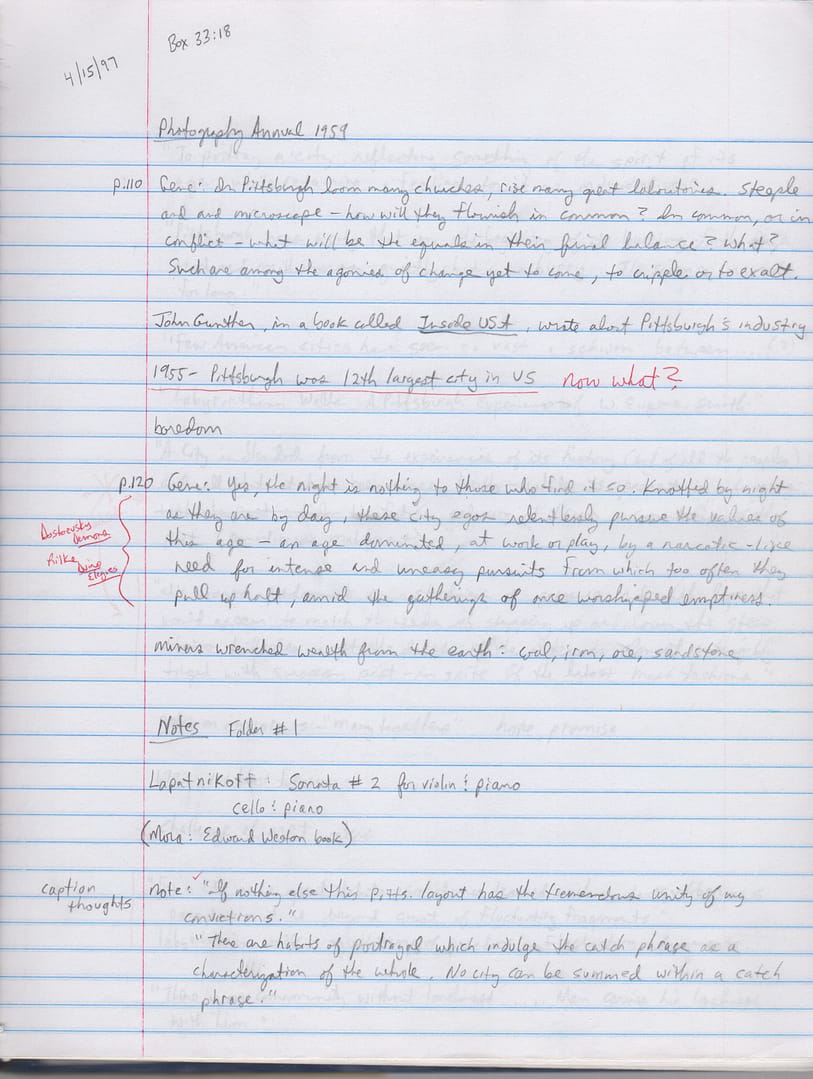 Box 33:18
4/15/97
Photography Annual 1959
p.110 Gene: In Pittsburgh loom many churches, rise many great laboratories. Steeple
and and microscope – how will they flourish in common? In common, or in
conflict – what will be the equals in their final balance? What?
Such are among the agonies of change yet to come, to cripple or to exalt.
John Gunther, in a book called Inside USA, wrote about Pittsburgh's industry
1955 – Pittsburgh was 12th largest city in US now what?
boredom
p.120 Gene: Yes, the night is nothing to those who find it so. Knotted by night
as they are by day, these city egos relentlessly pursue the values of
Dostoevsky
Demons
this age – an age dominated, at work or play, by a narcotic-like
Rilke
Elegies
need for intense and uneasy pursuits from which too often they
pull up halt, amid the gatherings of once worshipped emptiness.
miners wrenched wealth from the earth: coal, iron, ore, sandstone
Notes Folder #1
Lapatnikoff: Sonata #2 for violin & piano
cello & piano
(Mora: Edward Weston book)
caption
thoughts
note: "If nothing else this Pitts. layout has the tremendous unity of my
convictions."
"There are habits of portrayal which indulge the catch phrase as a
characterization of the whole. No city can be summed within a catch
phrase."